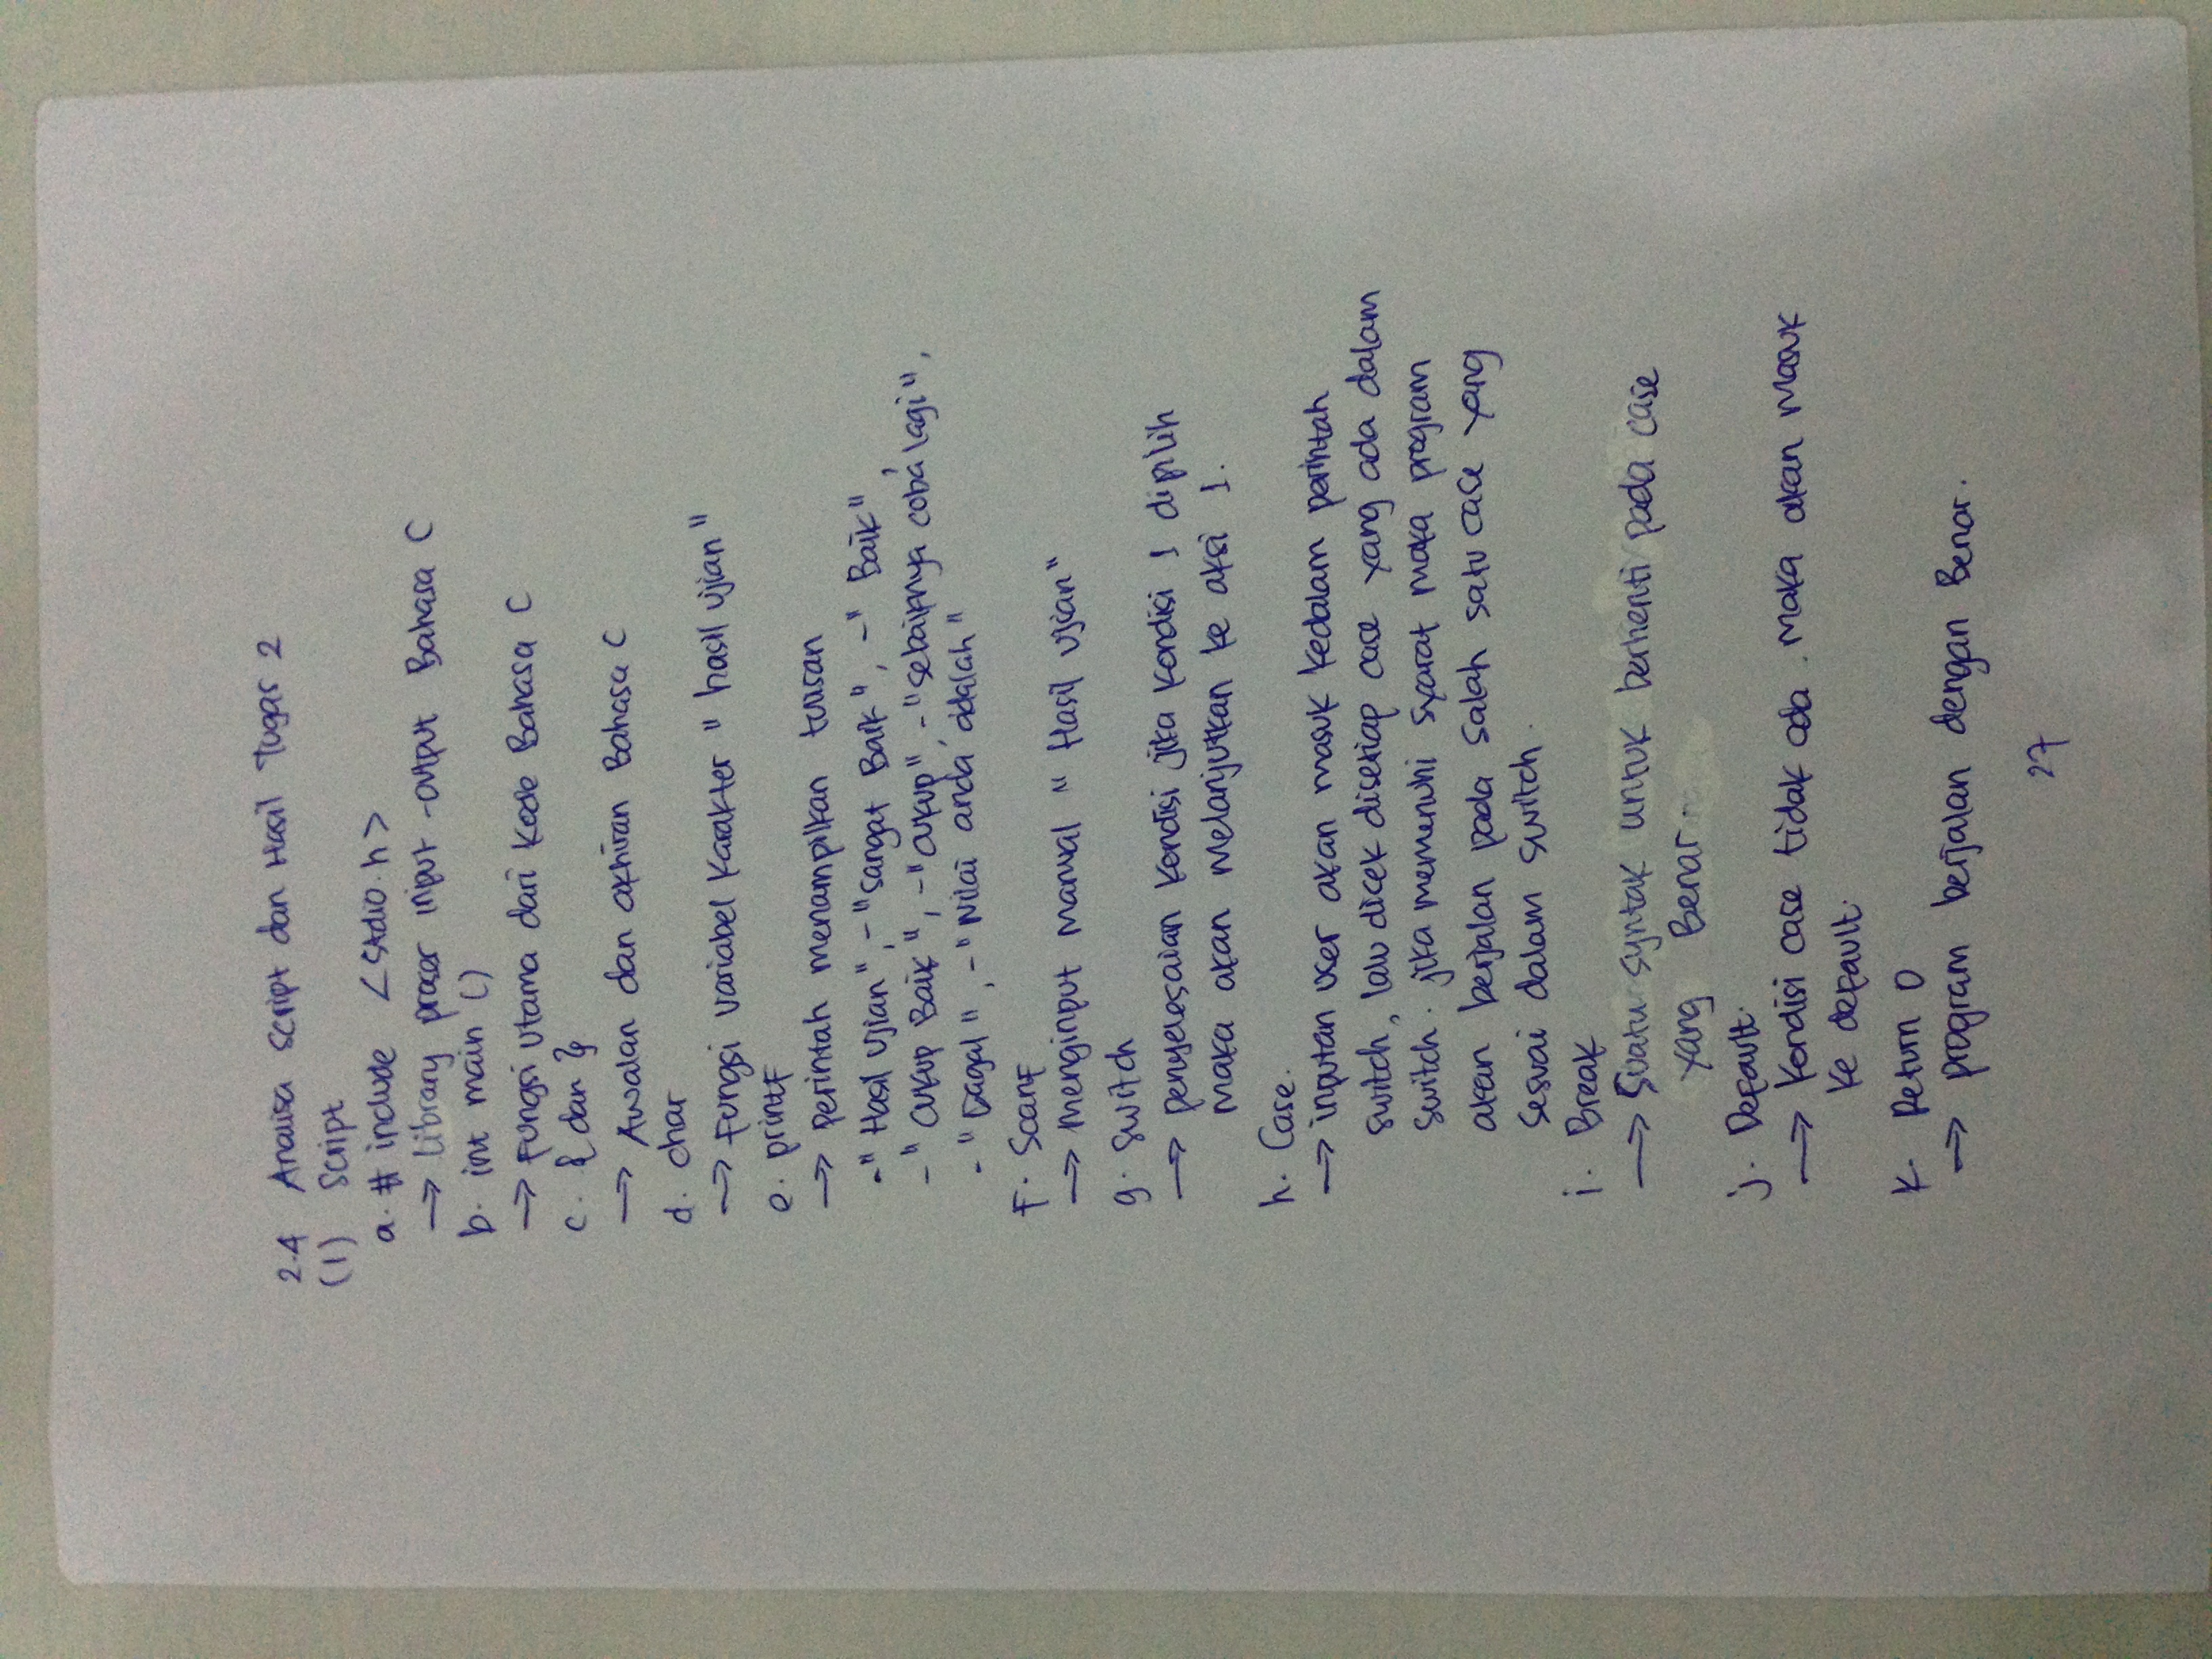 2.4 Analisa Script dan Hasil Tugas 2
(1) Script
a. # include <stdio.h>
→ Library proses input -output Bahasa C
b. int main ()
→ Fungsi utama dari kode Bahasa C
c. { dan }
→ Awalan dan akhiran Bahasa C
d. char
→ Fungsi variabel karakter " hasil ujian "
e. printf
→ perintah menampilkan tulisan
-" Hasil Ujian ", - "Sangat Baik ", - " Baik ",
- " Cukup Baik ", - "Cukup", - "sebaiknya coba lagi ",
- " Gagal ", - " Nilai anda adalah "
F. Scanf
→ menginput manual " Hasil Ujian "
g. switch
→ penyelesaian kondisi jika kondisi 1 dipilih
maka akan melanjutkan ke aksi 1.
h. Case.
→ inputan user akan masuk kedalam perintah
switch, lalu dicek disetiap case yang ada dalam
switch. jika memenuhi syarat maka program
akan berjalan pada salah satu case yang
sesuai dalam switch.
i. Break
→ Suatu syntak untuk berhenti pada case
yang Benar.
j. Default.
→ Kondisi case tidak ada. maka akan masuk
ke default.
k. Return 0
→ program berjalan dengan Benar.
27